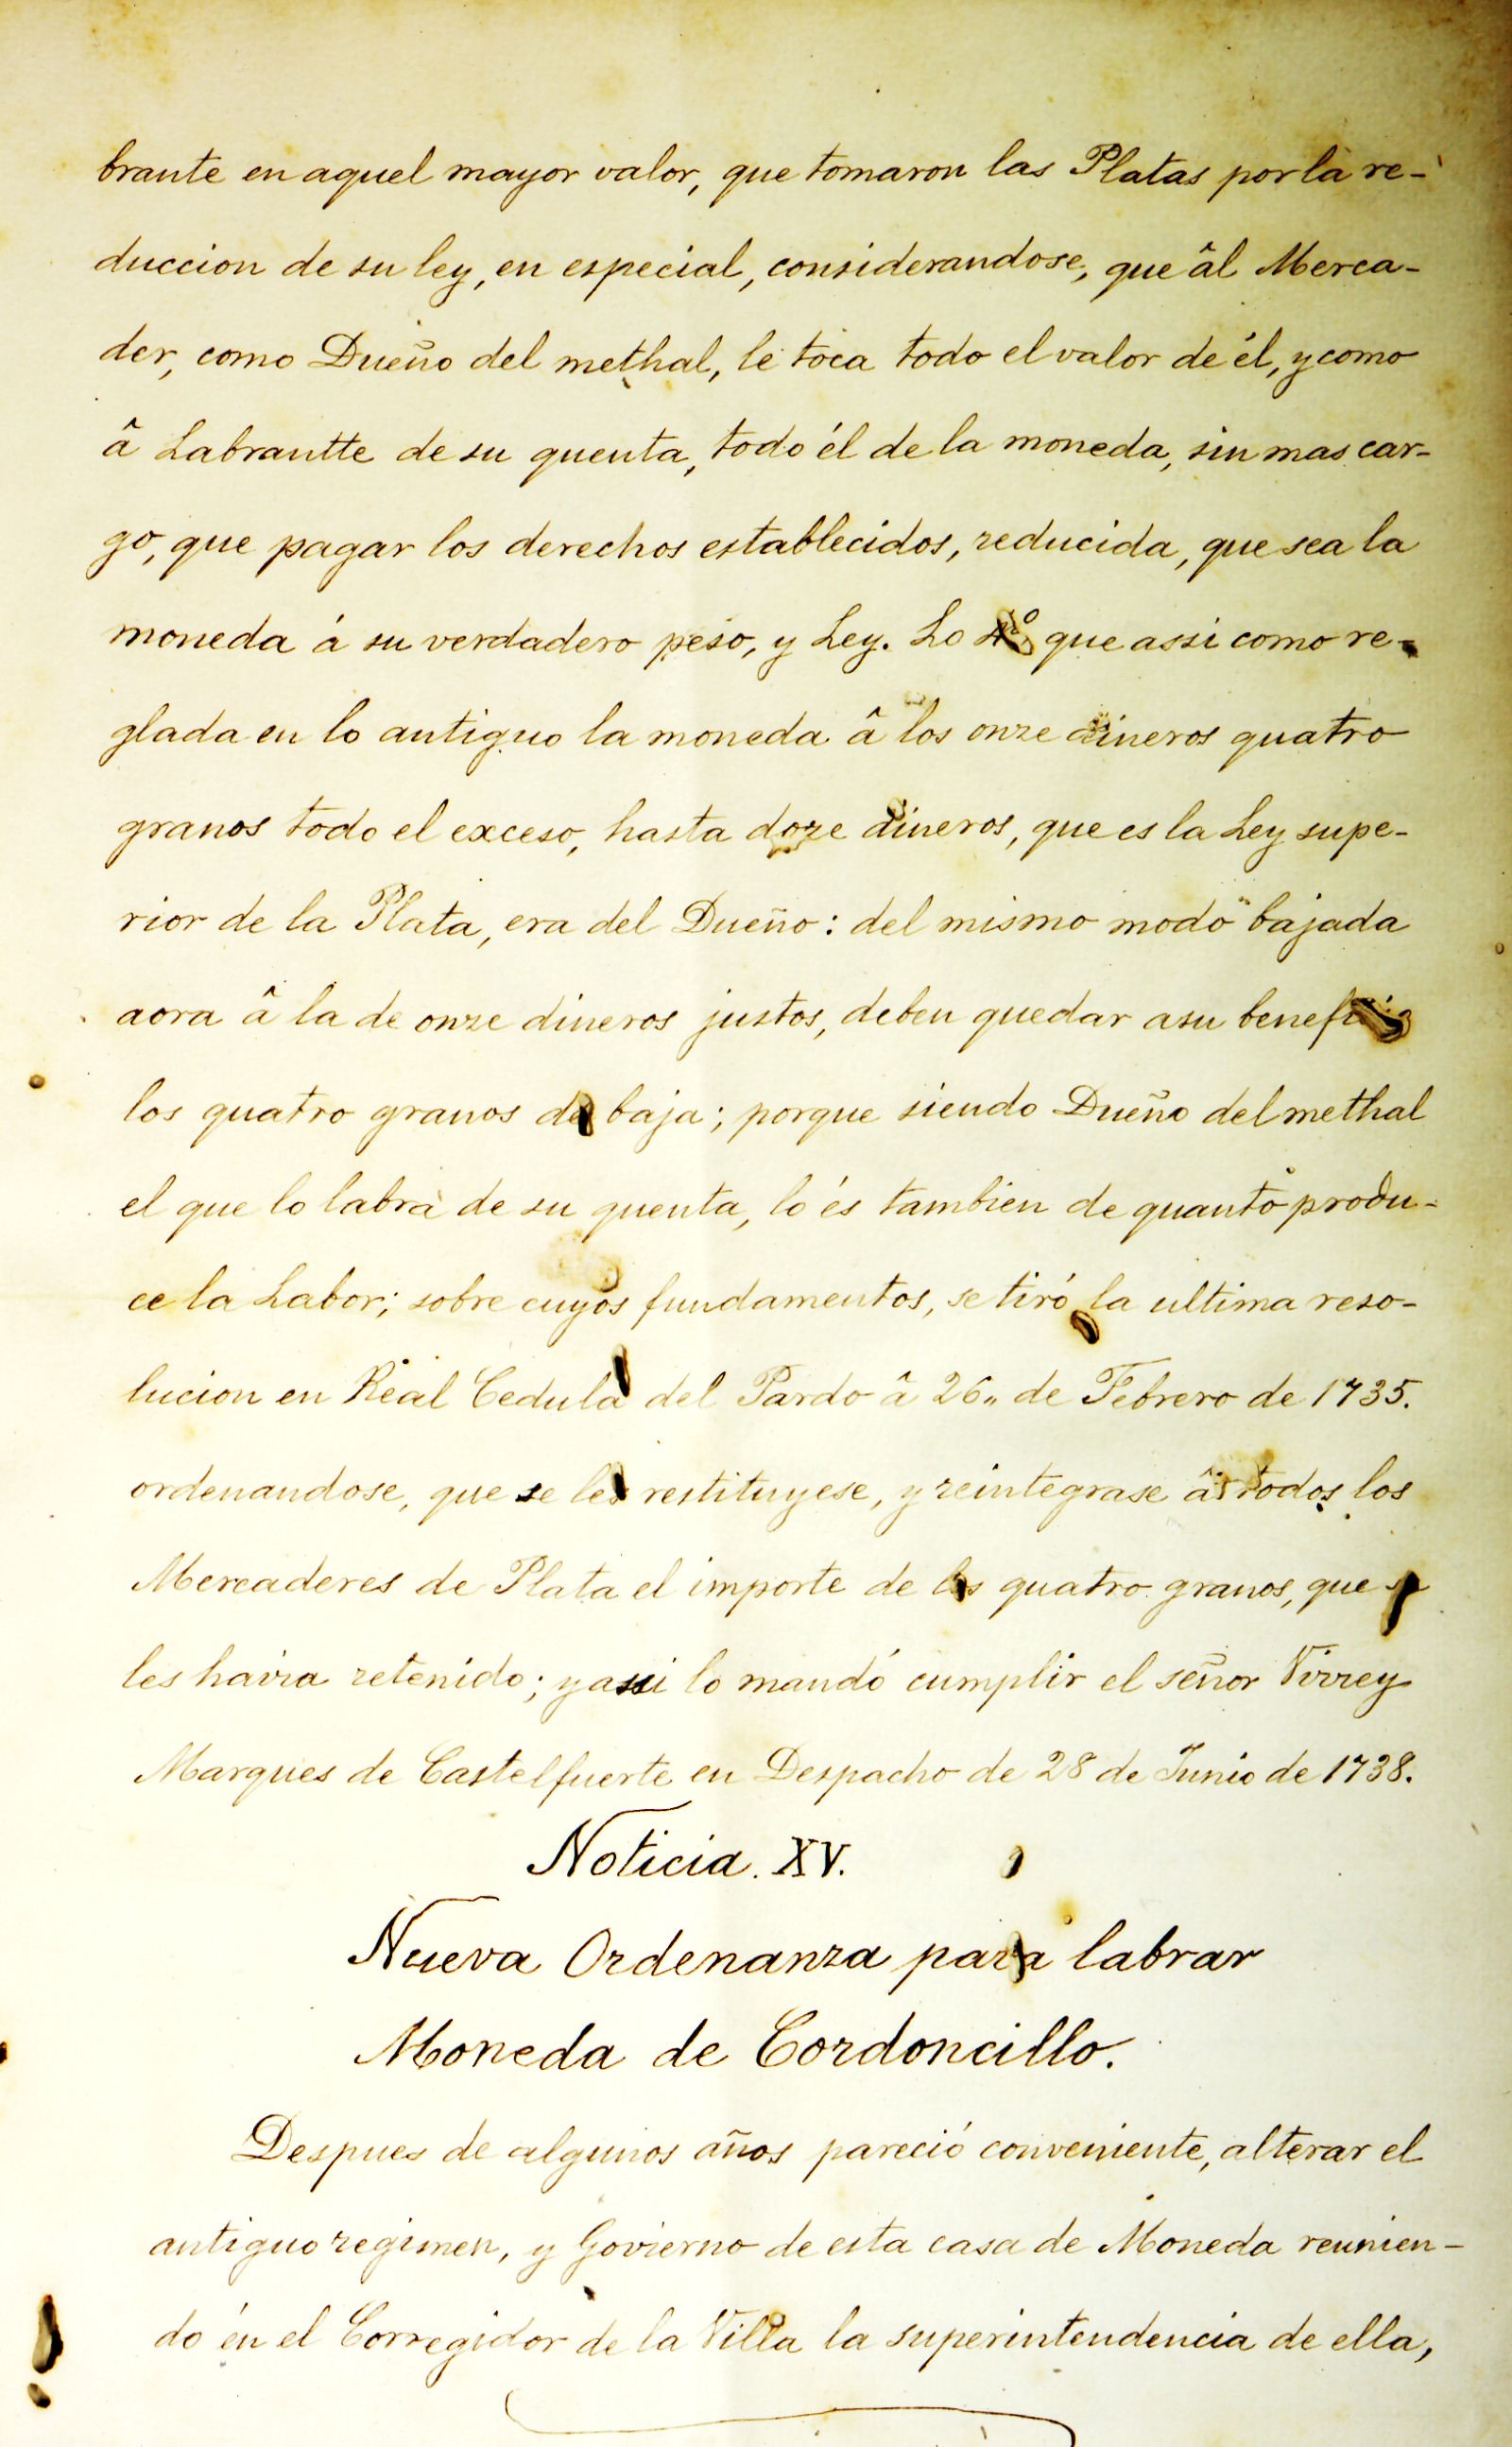 brante en aquel mayor valor, que tomaron las Platas por la re-
duccion de su ley, en especial, considerandose, que âl Merca-
der, como Dueño del methal, le toca todo el valor de él, y como
â Labrantte de su quenta, todo él de la moneda, sin mas car-
go, que pagar los derechos establecidos, reducida, que sea la
moneda á su verdadero peso, y Ley. Lo 4º que assi como re-
glada en lo antiguo la moneda â los onze dineros quatro
granos todo el exceso, hasta doze dineros, que es la Ley supe-
rior de la Plata, era del Dueño: del mismo modo bajada
aora â la de onze dineros justos, deben quedar a su
los quatro granos de baja; porque siendo Dueño del methal
el que lo labra de su quenta, lo és tambien de quanto produ-
ce la Labor; sobre cuyos fundamentos, se tiró la ultima reso-
lucion en Real Cedula del Pardo â 26,, de Febrero de 1735.
ordenandose, que se les restituyese, y reintegrase â todos los
Mercaderes de Plata el importe de los quatro granos, que se
les havia retenido; y assi lo mandó cumplir el señor Virrey
Marques de Castelfuerte en Despacho de 28 de Junio de 1738.
Noticia. XV.
Nueva Ordenanza para labrar
Moneda de Cordoncillo.
Despues de algunos años pareció conveniente, alterar el
antiguo regimen, y Govierno de esta casa de Moneda reunien-
do én el Corregidor de la Villa la superintendencia de ella,